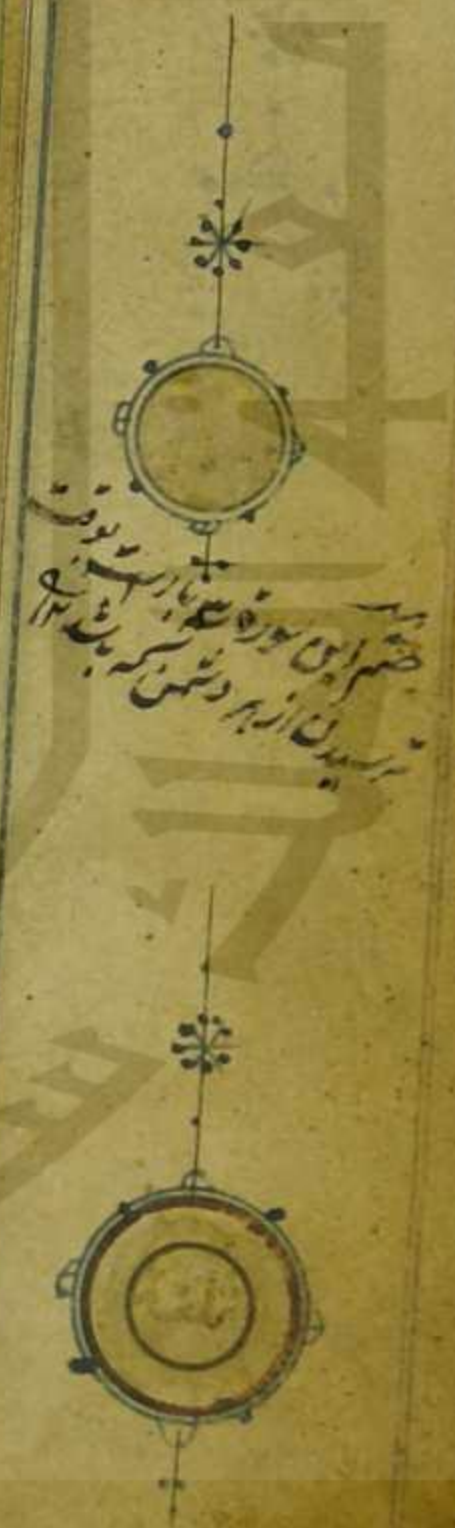 ختم این سورة ۳ بار است بوقت
ترسیدن از هر دشمن که باشد ۱۲